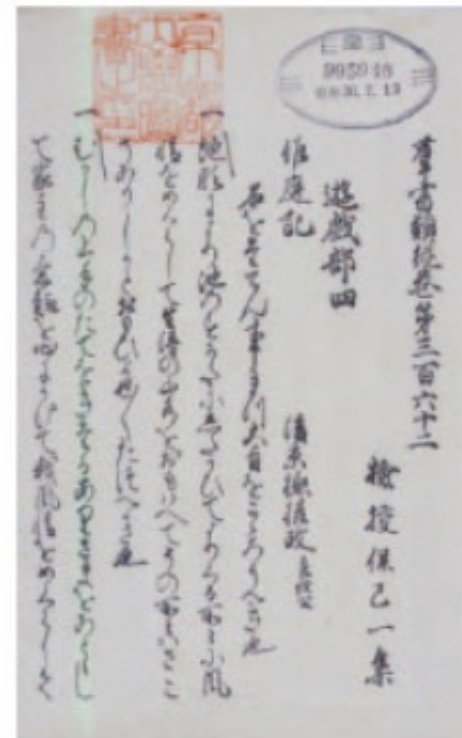 群書類従巻第三百六十二
検校保己一集
遊戯部四
作庭記 後京極摂政 良経公
石をたてん事まつ大旨をこゝろうへき也
一地形により池のすかたにしたかひてよりくる所々に風
情をめくらして生得の山水をおもはへてその所々はさこ
そありしかとおもひよせ〳〵たつへき也
一むかしの上手のたてをきたるありさまをあととし